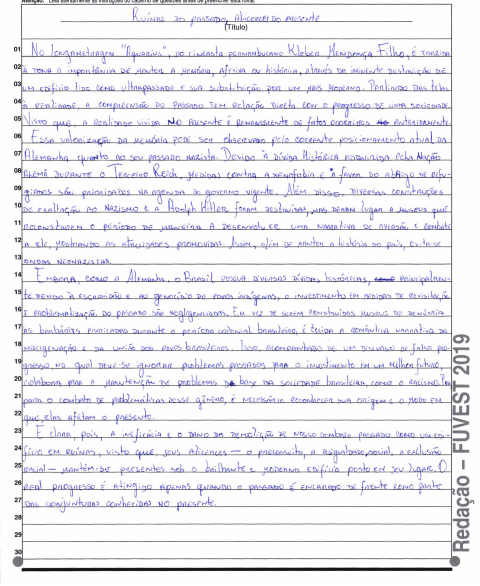 Atenção: Leia atentamente as instruções do caderno de questões antes de preencher esta folha.
Ruínas do passado, Alicerces do presente
(Título)
01 No longametragem "Aquarius", do cineasta pernambucano Kleber Mendonça Filho, é trazida
02 à tona a importância de manter a memória, afetiva ou histórica, através da iminente destruição de
03 um edifício tido como ultrapassado e sua substituição por um mais moderno. Partindo das telas
04 à realidade, a compreensão do passado tem relação direta com o progresso de uma sociedade
05 visto que, a realidade vivida no presente é remanescente de fatos ocorridos anteriormente.
06 Essa valorização da memória pode ser observada pelo coerente posicionamento atual da
07 Alemanha quanto ao seu passado nazista. Devido à dívida histórica adquirida pela nação
08 alemã durante o Terceiro Reich, medidas contra a xenofobia e à favor do abrigo de refu-
09 giados são priorizados na agenda do governo vigente. Além disso, diversas construções
10 de exaltação ao nazismo e a Adolph Hitler foram destruídas, mas deram lugar a museus que
11 reconstroem o período de maneira a desenvolver uma narrativa de aversão e combate
12 a ele, mostrando as atrocidades promovidas. Assim, além de manter a história do país, evita-se
13 ondas neonazistas.
14 Embora, como a Alemanha, o Brasil possua diversas dívidas históricas, principalmen-
15 te devido à escravidão e ao genocídio de povos indígenas, o investimento em medidas de revisitação
16 e problematização do passado são negligenciados. Em vez de serem construídos museus de denúncia
17 às barbáries praticadas durante o período colonial brasileiro, é tecida a romântica narrativa da
18 miscigenação e da união dos povos brasileiros. Isso, acompanhado de um discurso de falso pro-
19 gresso no qual deve-se ignorar problemas passados para o investimento em um melhor futuro,
20 colabora para a manutenção de problemas da base da sociedade brasileira, como o racismo. Pois
21 para o combate de problemáticas desse gênero, é necessário reconhecer sua origem e o modo em
22 que elas afetam o presente.
23 É clara, pois, a ineficácia e o dano da demolição de nosso sombrio passado como um edi-
24 fício em ruínas, visto que, seus alicerces — o preconceito, a desigualdade social, a exclusão
25 racial — mantêm-se presentes sob o brilhante e moderno edifício posto em seu lugar. O
26 real progresso é atingido apenas quando o passado é encarado de frente como parte
27 das conjunturas conhecidas no presente.
28
29
30
Redação – FUVEST 2019